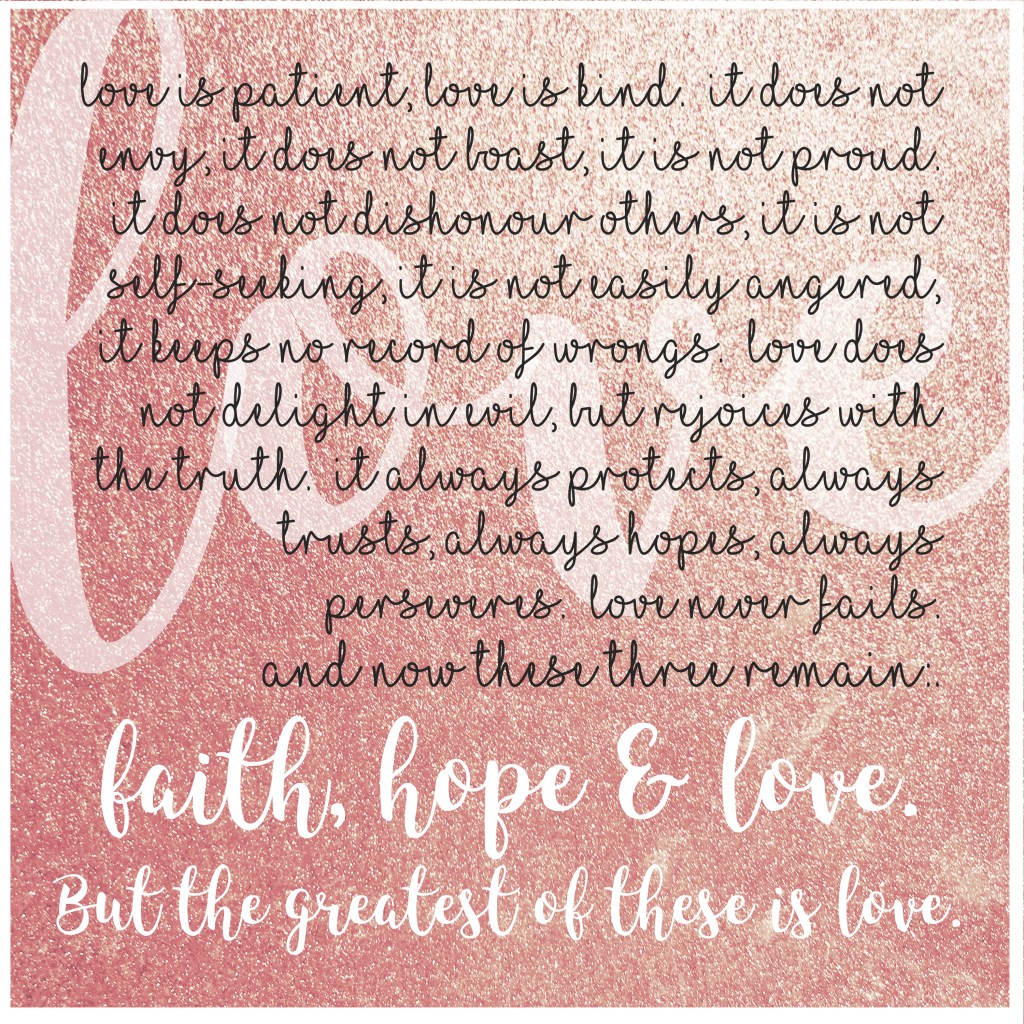 love
love is patient, love is kind. it does not
envy, it does not boast, it is not proud.
it does not dishonour others, it is not
self-seeking, it is not easily angered,
it keeps no record of wrongs. love does
not delight in evil, but rejoices with
the truth. it always protects, always
trusts, always hopes, always
perseveres. love never fails.
and now these three remain:.
faith, hope & love.
But the greatest of these is love.